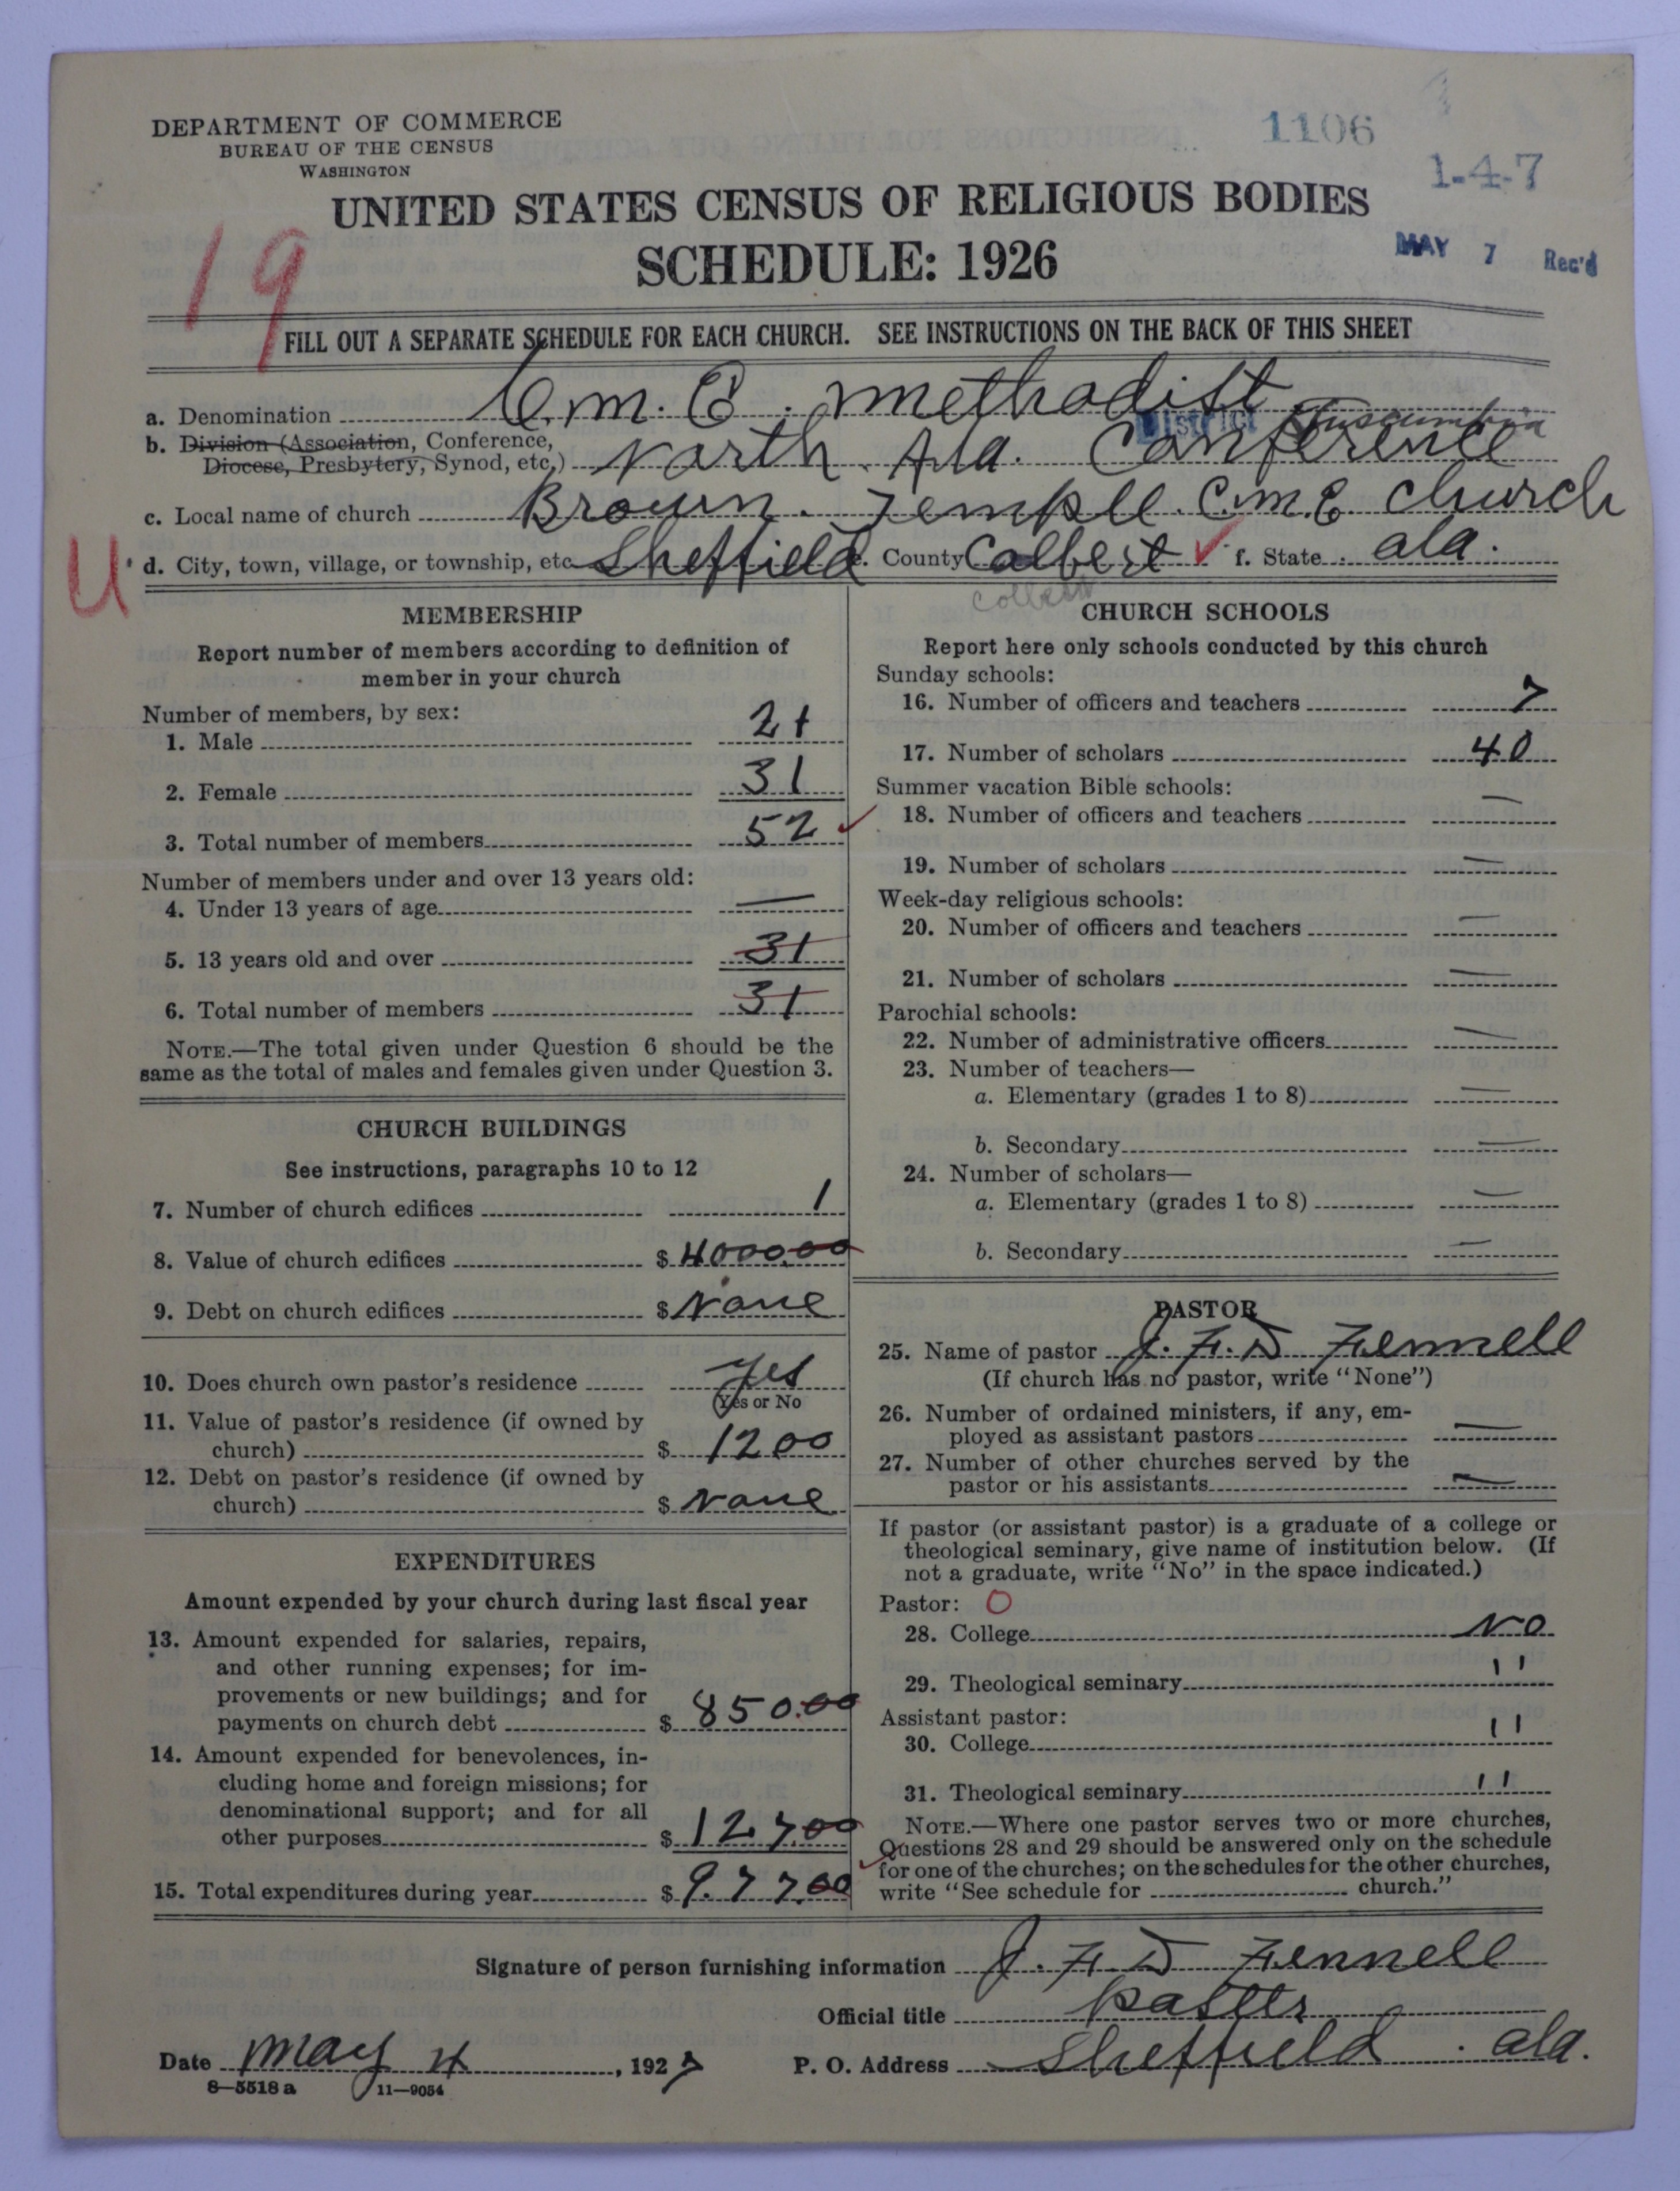 DEPARTMENT OF COMMERCE
BUREAU OF THE CENSUS
WASHINGTON
1106
1-4-7
UNITED STATES CENSUS OF RELIGIOUS BODIES
SCHEDULE: 1926
MAY 7 Rec'd
19
FILL OUT A SEPARATE SCHEDULE FOR EACH CHURCH. SEE INSTRUCTIONS ON THE BACK OF THIS SHEET
a. Denomination C.M.E. Methodist
District Tuscumbia
b. Division (Association, Conference,
Diocese, Presbytery, Synod, etc.) North Ala. Conference
c. Local name of church Brown. Temple. C.M.E Church
U d. City, town, village, or township, etc. Sheffield e. County Colbert ✓ f. State Ala.
Colbert
MEMBERSHIP
Report number of members according to definition of
member in your church
Number of members, by sex:
1. Male 21
2. Female 31
3. Total number of members 52 ✓
Number of members under and over 13 years old:
4. Under 13 years of age —
5. 13 years old and over 31
6. Total number of members 31
NOTE.—The total given under Question 6 should be the
same as the total of males and females given under Question 3.
CHURCH BUILDINGS
See instructions, paragraphs 10 to 12
7. Number of church edifices 1
8. Value of church edifices $ 4000.00
9. Debt on church edifices $ None
10. Does church own pastor's residence Yes
(Yes or No
11. Value of pastor's residence (if owned by
church) $ 1200
12. Debt on pastor's residence (if owned by
church) $ None
EXPENDITURES
Amount expended by your church during last fiscal year
13. Amount expended for salaries, repairs,
and other running expenses; for im-
provements or new buildings; and for
payments on church debt $ 850.00
14. Amount expended for benevolences, in-
cluding home and foreign missions; for
denominational support; and for all
other purposes $ 127.00
15. Total expenditures during year $ 977.00 ✓
CHURCH SCHOOLS
Report here only schools conducted by this church
Sunday schools:
16. Number of officers and teachers 7
17. Number of scholars 40
Summer vacation Bible schools:
18. Number of officers and teachers —
19. Number of scholars —
Week-day religious schools:
20. Number of officers and teachers —
21. Number of scholars —
Parochial schools:
22. Number of administrative officers —
23. Number of teachers—
a. Elementary (grades 1 to 8) —
b. Secondary —
24. Number of scholars—
a. Elementary (grades 1 to 8) —
b. Secondary —
PASTOR
25. Name of pastor J. F. D Fennell
(If church has no pastor, write "None")
26. Number of ordained ministers, if any, em-
ployed as assistant pastors —
27. Number of other churches served by the
pastor or his assistants —
If pastor (or assistant pastor) is a graduate of a college or
theological seminary, give name of institution below. (If
not a graduate, write "No" in the space indicated.)
Pastor: O
28. College No
29. Theological seminary "
Assistant pastor:
30. College "
31. Theological seminary "
NOTE.—Where one pastor serves two or more churches,
Questions 28 and 29 should be answered only on the schedule
for one of the churches; on the schedules for the other churches,
write "See schedule for church."
Signature of person furnishing information J. F. D Fennell
Official title Paster
Date May 4, 1927 P. O. Address Sheffield. Ala.
8—5518 a 11—9054